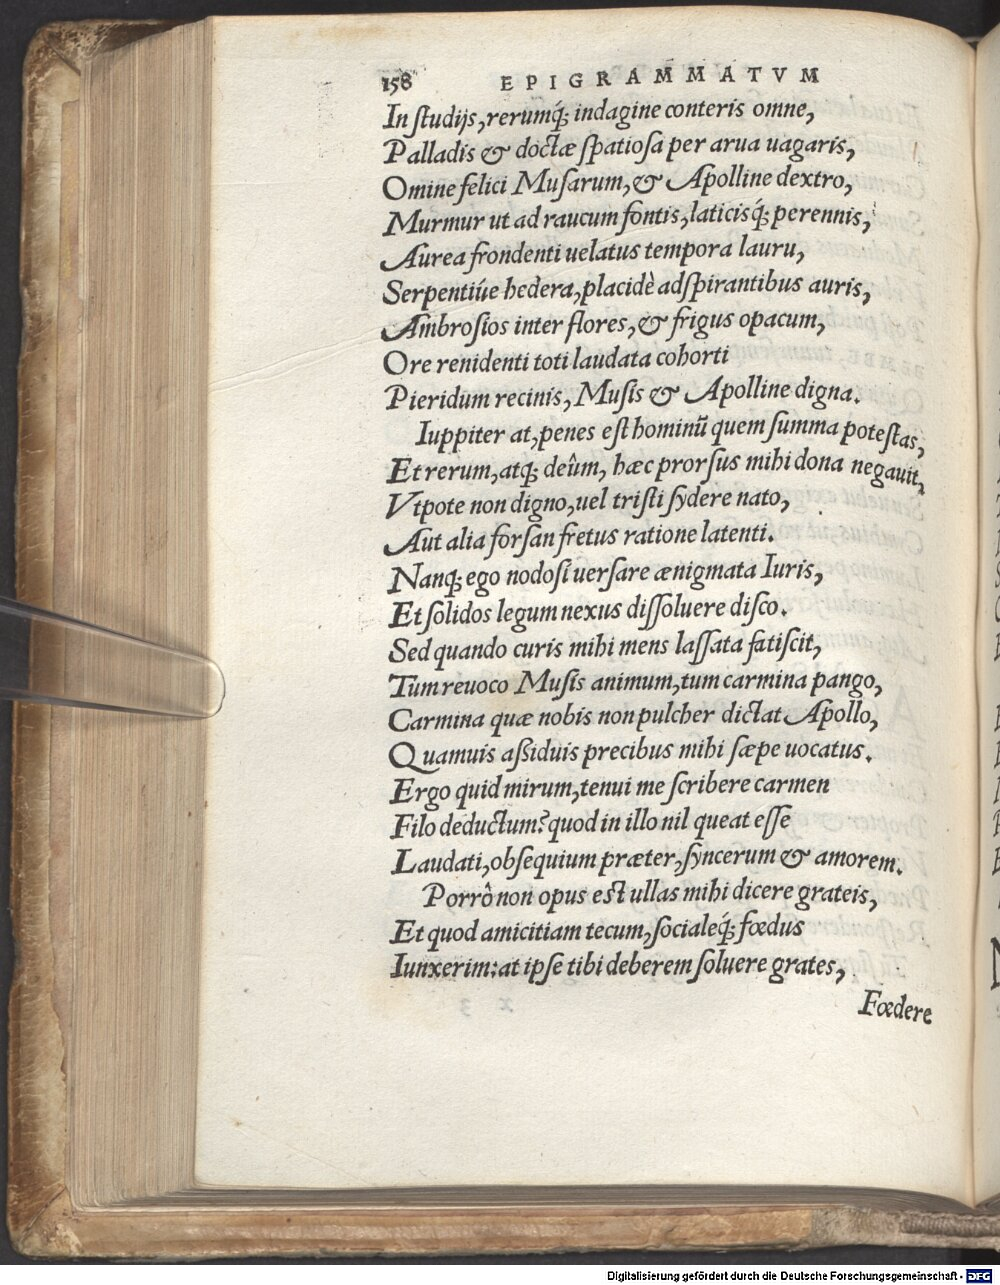 158 EPIGRAMMATVM
In ſtudijs, rerumq́; indagine conteris omne,
Palladis & doctæ ſpatioſa per arua uagaris,
Omine felici Muſarum, & Apolline dextro,
Murmur ut ad raucum fontis, laticisq́; perennis,
Aurea frondenti uelatus tempora lauru,
Serpentiúe hedera, placidè adſpirantibus auris,
Ambroſios inter flores, & frigus opacum,
Ore renidenti toti laudata cohorti
Pieridum recinis, Muſis & Apolline digna.
Iuppiter at, penes eſt hominū quem ſumma poteſtas,
Et rerum, atq; deûm, hæc prorſus mihi dona negauit,
Vtpote non digno, uel triſti ſydere nato,
Aut alia forſan fretus ratione latenti.
Nanq; ego nodoſi uerſare ænigmata Iuris,
Et ſolidos legum nexus diſſoluere diſco.
Sed quando curis mihi mens laſſata fatiſcit,
Tum reuoco Muſis animum, tum carmina pango,
Carmina quæ nobis non pulcher dictat Apollo,
Quamuis aßiduis precibus mihi ſæpe uocatus.
Ergo quid mirum, tenui me ſcribere carmen
Filo deductum? quod in illo nil queat eſſe
Laudati, obſequium præter, ſyncerum & amorem.
Porrò non opus eſt ullas mihi dicere grateis,
Et quod amicitiam tecum, ſocialeq́; fœdus
Iunxerim: at ipſe tibi deberem ſoluere grates,
Fœdere
Digitalisierung gefördert durch die Deutsche Forschungsgemeinschaft - DFG